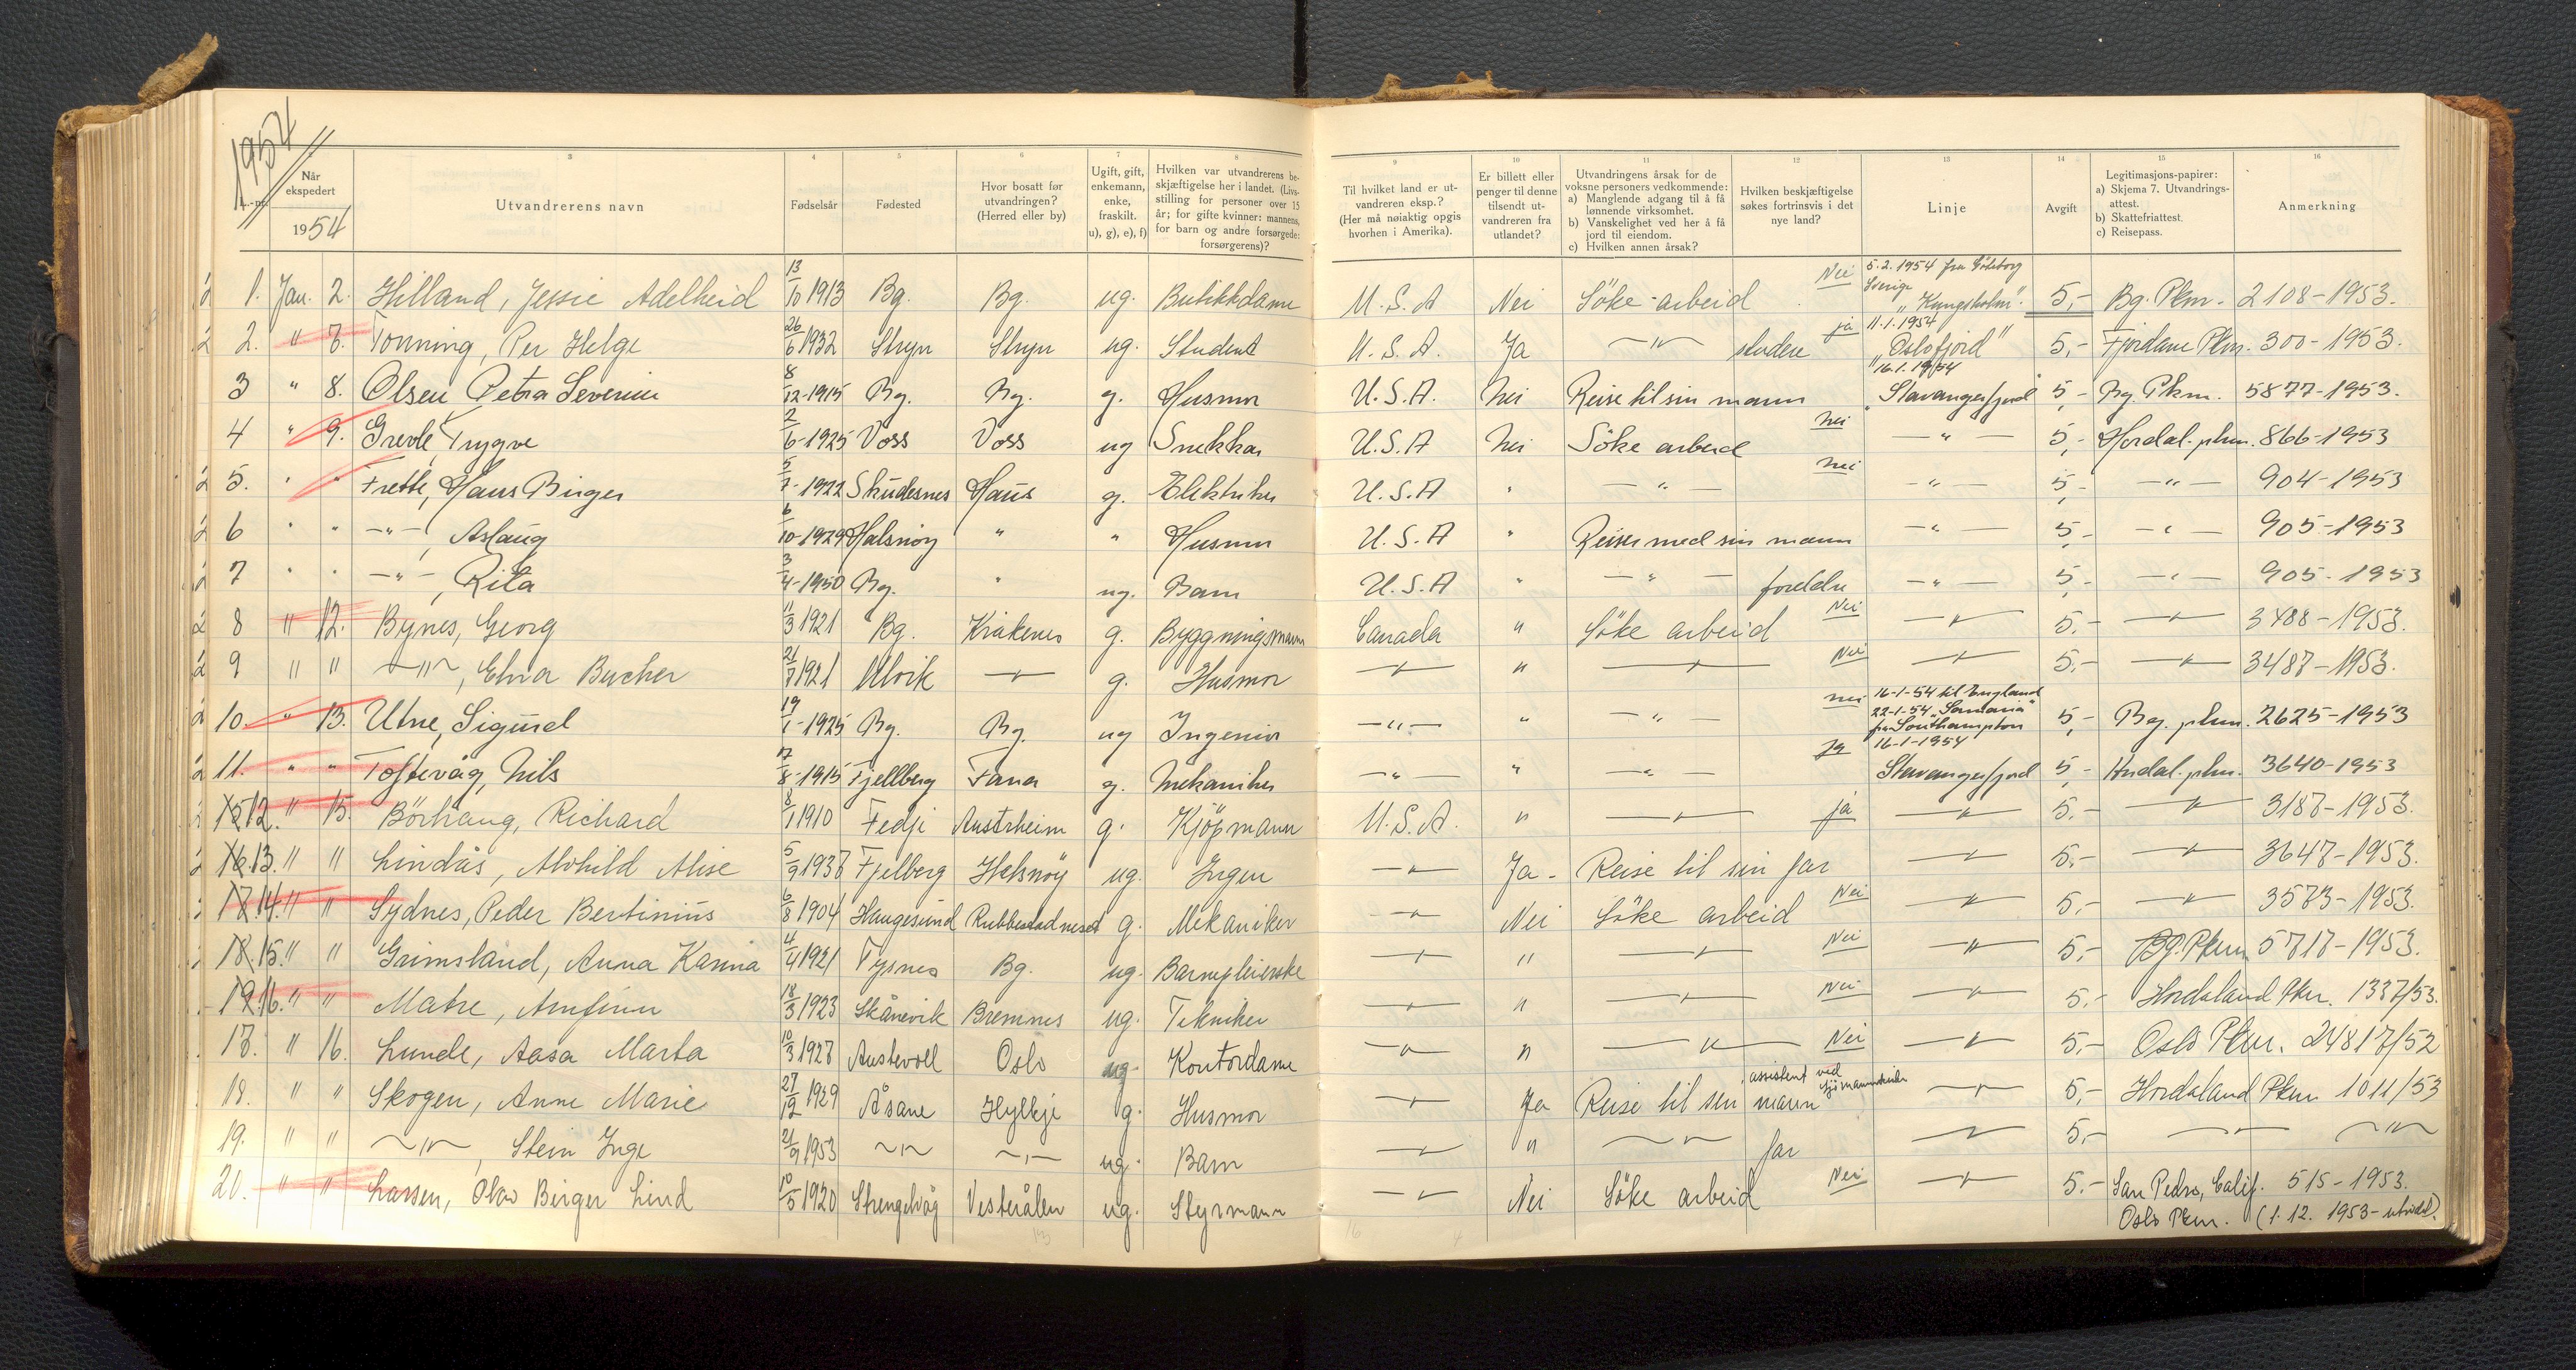 1954
L.-nr.
Når ekspedert
1954
3 Utvandrerens navn
4 Fødselsår
5 Fødested
6 Hvor bosatt før utvandringen? (Herred eller by)
7 Ugift, gift, enkemann, enke, fraskilt. u), g), e), f)
8 Hvilken var utvandrerens beskjæftigelse her i landet. (Livsstilling for personer over 15 år; for gifte kvinner: mannens, for barn og andre forsørgede: forsørgerens)?
9 Til hvilket land er utvandreren eksp.? (Her må nøiaktig opgis hvorhen i Amerika).
10 Er billett eller penger til denne tilsendt utvandreren fra utlandet?
11 Utvandringens årsak for de voksne personers vedkommende: a) Manglende adgang til å få lønnende virksomhet. b) Vanskelighet ved her å få jord til eiendom. c) Hvilken annen årsak?
12 Hvilken beskjæftigelse søkes fortrinsvis i det nye land?
13 Linje
14 Avgift
15 Legitimasjons-papirer: a) Skjema 7. Utvandrings-attest. b) Skattefriattest. c) Reisepass.
16 Anmerkning
1. Jan. 2. Hilland, Jessie Adelheid 13/10 1913 Bg. Bg. ug. Butikkdame U.S.A Nei Söke arbeid Nei 5.2.1954 fra Göteborg Sverige "Kungsholm". 5,- Bg. Pkm. 2108-1953.
2. " 7. Tonning, Per Helge 26/6 1932 Stryn Stryn ug. Student U.S.A. Ja —"— studere ja 11.1.1954 "Oslofjord" 5,- Fjordane Pkm. 300-1953.
3 " 8. Olsen Petra Severine 8/12-1915 Bg. Bg. g. Husmor U.S.A. Nei Reise til sin mann 16.1.1954 "Stavangerfjord" 5,- Bg. Pkm. 5877-1953.
4 " 9. Grevle, Trygve 2/6-1925 Voss Voss ug Snekker U.S.A Nei Söke arbeid nei —"— 5,- Hordal. pkm. 866-1953
5. " " Frette, Hans Birger 5/7-1922 Skudesnes Haus g. Elektriker U.S.A " —"— nei —"— 5,- —"— 904-1953
6 " " —"—, Aslaug 6/10-1929 Halsnøy " " Husmor U.S.A " Reiser med sin mann —"— 5,- —"— 905-1953
7 " " —"—, Rita 3/4-1950 Bg. " ug. Barn U.S.A " —"— foreldre —"— 5,- —"— 905-1953
8 " 12. Bynes, Georg 11/3 1921 Bg. Kråkenes g. Byggningsmann Canada " Söke arbeid Nei —"— 5.- —"— 3488-1953.
9 " " —"—, Elna Bucher 21/7 1921 Ulvik —"— g. Husmor —"— " —"— Nei —"— 5.- —"— 3487-1953.
10. " 13. Utne, Sigurd 19/1-1925 Bg. Bg. ug Ingeniør —"— " —"— nei 16-1-54 til England 22-1-54 "Samaria" fra Southampton 5,- Bg. pkm. 2625-1953
11. " " Toftevåg, Nils 17/8-1915 Fjellberg Fana g. Mekaniker —"— " —"— Ja 16-1-1954 Stavangerfjord 5,- Hordal. pkm. 3640-1953
15 12. " 15. Börhaug, Richard 8/1 1910 Fedje Austrheim g. Kjöpmann U.S.A. " —"— ja —"— 5.- —"— 3187-1953.
16 13. " " Lindås, Alvhild Alise 5/9 1937 Fjelberg Halsnöy ug. Ingen —"— Ja - Reise til sin far —"— 5.- —"— 3647-1953.
17 14. " " Sydnes, Peder Bertinius 6/8 1904 Haugesund Rubbestadneset g. Mekaniker —"— Nei Söke arbeid Nei —"— 5.- —"— 3573-1953.
18 15. " " Grimsland, Anna Karina 4/4 1921 Tysnes Bg. ug. Barnepleierske —"— " —"— Nei —"— 5.- Bg. Pkm 5717-1953.
19 16. " " Matre, Arnfinn 18/3 1923 Skånevik Bremnes ug. Tekniker —"— " —"— Nei —"— 5.- Hordaland Pkm. 1337/53.
17. " 16. Lunde, Aasa Marta 10/3 1927 Austevoll Oslo ug. Kontordame —"— " —"— Nei —"— 5.- Oslo Pkm. 24817/52
18. " " Skogen, Anne Marie 27/12 1929 Åsane Hylkje g. Husmor —"— Ja Reise til sin mann, assistent ved sjömannskirken —"— 5,- Hordaland Pkm 1011/53
19. " " —"—, Stein Inge 21/9 1953 —"— —"— ug. Barn —"— " —"— far —"— 5,- —"— —"—
20. " " Larsen, Olav Birger Lind 10/5 1920 Strengelvåg Vesterålen ug. Styrmann —"— Nei Söke arbeid Nei —"— 5.- San Pedro, Calif. 515-1953.
Oslo Pkm. (1.12.1953- utvidet).